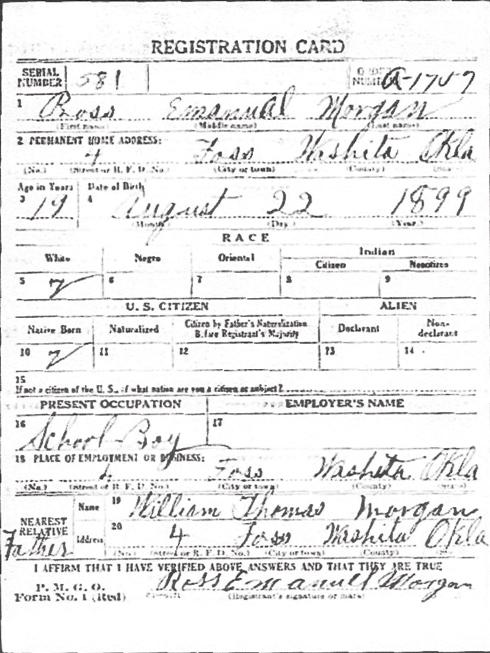 REGISTRATION CARD
SERIAL NUMBER 581 ORDER NUMBER A-1757
1 Ross Emanual Morgan
(First name) (Middle name) (Last name)
2 PERMANENT HOME ADDRESS:
4 Foss Washita Okla
(No.) (Street or R. F. D. No.) (City or town) (County) (State)
Age in Years Date of Birth
3 19 4 August 22 1899
(Month) (Day) (Year)
RACE
White Negro Oriental Indian
Citizen Noncitizen
5 6 7 8 9
U. S. CITIZEN ALIEN
Native Born Naturalized Citizen by Father's Naturalization Before Registrant's Majority Declarant Non-declarant
10 11 12 13 14
15
If not a citizen of the U. S., of what nation are you a citizen or subject?
PRESENT OCCUPATION EMPLOYER'S NAME
16 School Boy 17
18 PLACE OF EMPLOYMENT OR BUSINESS:
Foss Washita Okla
(No.) (Street or R. F. D. No.) (City or town) (County) (State)
NEAREST RELATIVE Name 19 William Thomas Morgan
Father Address 20 4 Foss Washita Okla
(No.) (Street or R. F. D. No.) (City or town) (County) (State)
I AFFIRM THAT I HAVE VERIFIED ABOVE ANSWERS AND THAT THEY ARE TRUE
P. M. G. O.
Form No. 1 (Red) Ross Emanuel Morgan
(Registrant's signature or mark)